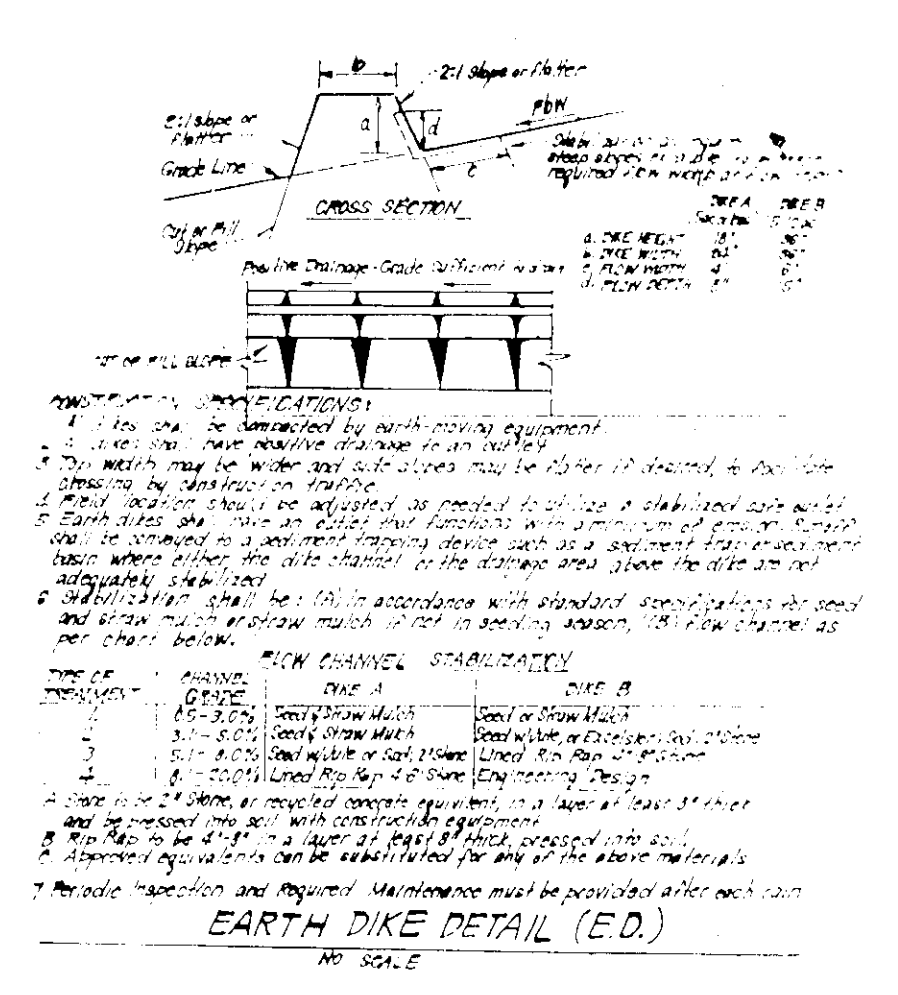 b
2:1 Slope or flatter
Flow
2:1 slope or
flatter
a
d
Grade Line
steep slopes
c
required flow width
CROSS SECTION
Cut or Fill
Slope
DIKE A DIKE B
a. DIKE HEIGHT 18" 36"
b. DIKE WIDTH 24" 36"
c. FLOW WIDTH 4' 6'
d. FLOW DEPTH 8" 15"
Positive Drainage-Grade Sufficient to drain
CUT OR FILL SLOPE
CONSTRUCTION SPECIFICATIONS:
dikes shall be compacted by earth-moving equipment.
2 dikes shall have positive drainage to an outlet
3 Top width may be wider and side slopes may be flatter if desired, to facilitate
crossing by construction traffic.
4 Field location should be adjusted as needed to utilize a stabilized safe outlet
5 Earth dikes shall have an outlet that functions with a minimum of erosion. Runoff
shall be conveyed to a sediment trapping device such as a sediment trap or sediment
basin where either the dike channel or the drainage area above the dike are not
adequately stabilized
6 Stabilization shall be: (A) in accordance with standard specifications for seed
and straw mulch or straw mulch if not in seeding season, (B) flow channel as
per chart below.
FLOW CHANNEL STABILIZATION
TYPE OF CHANNEL
TREATMENT GRADE DIKE A DIKE B
1 0.5-3.0% Seed & Straw Mulch Seed or Straw Mulch
2 3.1-5.0% Seed & Straw Mulch Seed w/Jute, or Excelsior; Sod; 2" Stone
3 5.1-8.0% Seed w/Jute or Sod; 2" Stone Lined Rip Rap 4"-8" Stone
4 8.1-20.0% Lined Rip Rap 4-8" Stone Engineering Design
A Stone to be 2" Stone, or recycled concrete equivilent, in a layer at least 3" thick
and be pressed into soil with construction equipment
B Rip Rap to be 4"-8" in a layer at least 8" thick, pressed into soil
C. Approved equivalents can be substituted for any of the above materials
7 Periodic Inspection and Required Maintenance must be provided after each rain
EARTH DIKE DETAIL (E.D.)
NO SCALE